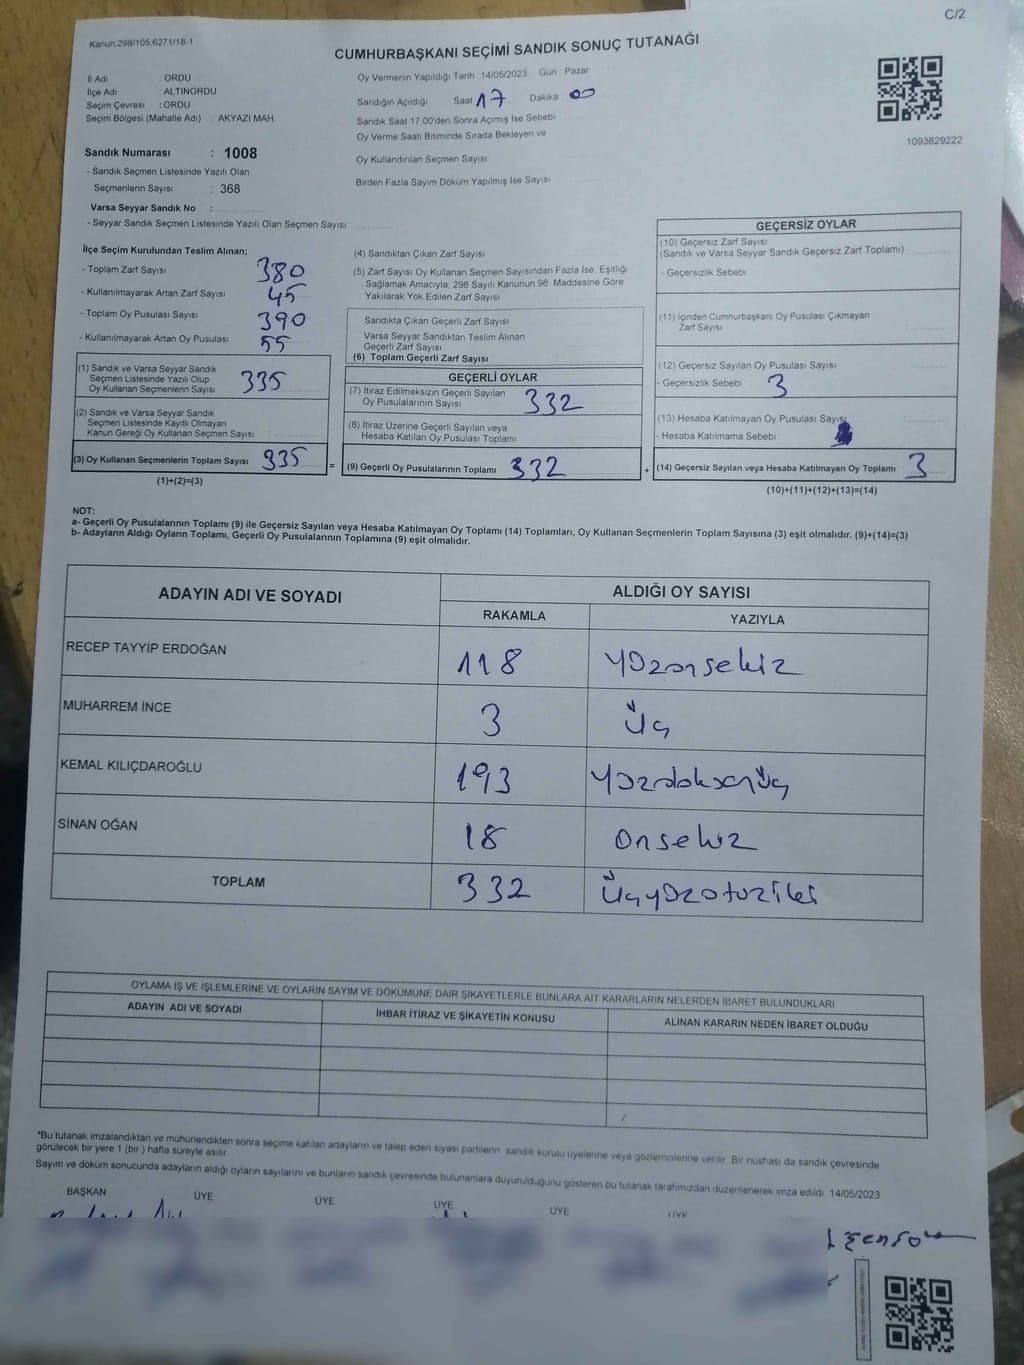 C/2
Kanun.298/105,6271/18-1
CUMHURBAŞKANI SEÇİMİ SANDIK SONUÇ TUTANAĞI
İl Adı : ORDU
İlçe Adı ALTINORDU
Seçim Çevresi : ORDU
Seçim Bölgesi (Mahalle Adı) AKYAZI MAH.
Oy Vermenin Yapıldığı Tarih 14/05/2023 Gün Pazar
Sandığın Açıldığı Saat 17 Dakika 00
Sandık Saat 17.00'den Sonra Açımış İse Sebebi
Oy Verme Saati Bitiminde Sırada Bekleyen ve
Oy Kullandırılan Seçmen Sayısı
Birden Fazla Sayım Döküm Yapılmış İse Sayısı
1093829222
Sandık Numarası : 1008
- Sandık Seçmen Listesinde Yazılı Olan
Seçmenlerin Sayısı : 368
Varsa Seyyar Sandık No :
- Seyyar Sandık Seçmen Listesinde Yazılı Olan Seçmen Sayısı
İlçe Seçim Kurulundan Teslim Alınan:
- Toplam Zarf Sayısı 380
- Kullanılmayarak Artan Zarf Sayısı 45
- Toplam Oy Pusulası Sayısı 390
- Kullanılmayarak Artan Oy Pusulası 55
(1) Sandık ve Varsa Seyyar Sandık
Seçmen Listesinde Yazılı Olup
Oy Kullanan Seçmenlerin Sayısı 335
(2) Sandık ve Varsa Seyyar Sandık
Seçmen Listesinde Kayıtlı Olmayan
Kanun Gereği Oy Kullanan Seçmen Sayısı
(3) Oy Kullanan Seçmenlerin Toplam Sayısı 335
(1)+(2)=(3)
=
(4) Sandıktan Çıkan Zarf Sayısı
(5) Zarf Sayısı Oy Kullanan Seçmen Sayısından Fazla İse, Eşitliği
Sağlamak Amacıyla, 298 Sayılı Kanunun 98. Maddesine Göre
Yakılarak Yok Edilen Zarf Sayısı
Sandıkta Çıkan Geçerli Zarf Sayısı
Varsa Seyyar Sandıktan Teslim Alınan
Geçerli Zarf Sayısı
(6) Toplam Geçerli Zarf Sayısı
GEÇERLİ OYLAR
(7) İtiraz Edilmeksizin Geçerli Sayılan
Oy Pusulalarının Sayısı 332
(8) İtiraz Üzerine Geçerli Sayılan veya
Hesaba Katılan Oy Pusulası Toplamı
(9) Geçerli Oy Pusulalarının Toplamı 332
+
GEÇERSİZ OYLAR
(10) Geçersiz Zarf Sayısı
(Sandık ve Varsa Seyyar Sandık Geçersiz Zarf Toplamı)
- Geçersizlik Sebebi
(11) İçinden Cumhurbaşkanı Oy Pusulası Çıkmayan
Zarf Sayısı
(12) Geçersiz Sayılan Oy Pusulası Sayısı
- Geçersizlik Sebebi 3
(13) Hesaba Katılmayan Oy Pusulası Sayısı
- Hesaba Katılmama Sebebi
(14) Geçersiz Sayılan veya Hesaba Katılmayan Oy Toplamı 3
(10)+(11)+(12)+(13)=(14)
NOT:
a- Geçerli Oy Pusulalarının Toplamı (9) ile Geçersiz Sayılan veya Hesaba Katılmayan Oy Toplamı (14) Toplamları, Oy Kullanan Seçmenlerin Toplam Sayısına (3) eşit olmalıdır. (9)+(14)=(3)
b- Adayların Aldığı Oyların Toplamı, Geçerli Oy Pusulalarının Toplamına (9) eşit olmalıdır.
ADAYIN ADI VE SOYADI ALDIĞI OY SAYISI
RAKAMLA YAZIYLA
RECEP TAYYİP ERDOĞAN 118 Yüzonsekiz
MUHARREM İNCE 3 Üç
KEMAL KILIÇDAROĞLU 193 Yüzdoksanüç
SİNAN OĞAN 18 Onsekiz
TOPLAM 332 Üçyüzotuziki
OYLAMA İŞ VE İŞLEMLERİNE VE OYLARIN SAYIM VE DÖKÜMÜNE DAİR ŞİKAYETLERLE BUNLARA AİT KARARLARIN NELERDEN İBARET BULUNDUKLARI
ADAYIN ADI VE SOYADI İHBAR İTİRAZ VE ŞİKAYETİN KONUSU ALINAN KARARIN NEDEN İBARET OLDUĞU
*Bu tutanak imzalandıktan ve mühürlendikten sonra seçime katılan adayların ve talep eden siyasi partilerin sandık kurulu üyelerine veya gözlemcilerine verilir. Bir nüshası da sandık çevresinde
görülecek bir yere 1 (bir) hafta süreyle asılır
Sayım ve döküm sonucunda adayların aldığı oyların sayılarını ve bunların sandık çevresinde bulunanlara duyurulduğunu gösteren bu tutanak tarafımızdan düzenlenerek imza edildi. 14/05/2023
BAŞKAN ÜYE ÜYE ÜYE ÜYE ÜYE